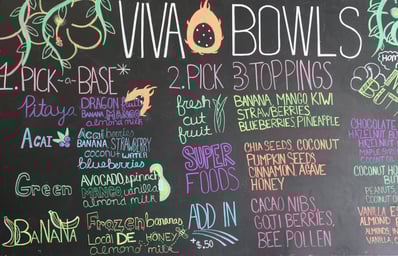 VIVA BOWLS
1. PICK-a-BASE*
Pitaya
DRAGON fruit
BANANA MANGO
almond milk
AÇAI
Açai berries
BANANA STRAWBERRY
coconut WATER
blueberries
Green
AVOCADO spinach
MANGO vanilla
almond milk
BANANA
Frozen bananas
Local DE HONEY
almond milk
2. PICK 3 TOPPINGS
fresh
cut
fruit
BANANA MANGO KIWI
STRAWBERRIES
BLUEBERRIES PINEAPPLE
SUPER
FOODS
CHIA SEEDS COCONUT
PUMPKIN SEEDS
CINNAMON, AGAVE
HONEY
ADD IN
+$.50
CACAO NIBS,
GOJI BERRIES,
BEE POLLEN
CHOCOLATE
HAZELNUT
HAZELNUT
MAPLE
ALMOND
COCONUT
PEANUTS,
COCONUT
VANILLA
ALMOND
ALMONDS, 
VANILLA